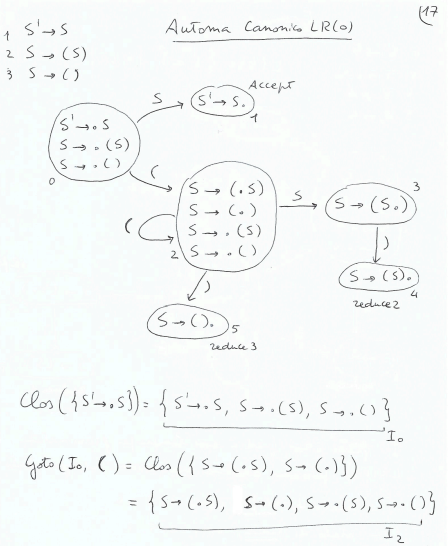 17
Automa Canonico LR(0)
1 S' → S
2 S → (S)
3 S → ()
S' → .S
S → .(S)
S → .()
0
S
S' → S.
Accept
1
(
S → (.S)
S → (.)
S → .(S)
S → .()
2
(
S
S → (S.)
3
)
S → (S).
4
reduce 2
)
S → ().
5
reduce 3
Clos({S' → .S}) = {S' → .S, S → .(S), S → .()}
I0
Goto(I0, () = Clos({S → (.S), S → (.)})
= {S → (.S), S → (.), S → .(S), S → .()}
I2